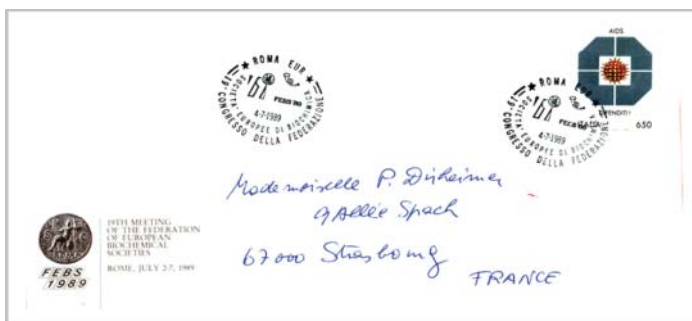 AIDS
DIFENDITI!
ITALIA 650
★ ROMA EUR ★
19° CONGRESSO DELLA FEDERAZIONE
SOCIETA' EUROPEE DI BIOCHIMICA
FEBS '89
4-7-1989
★ ROMA EUR ★
19° CONGRESSO DELLA FEDERAZIONE
SOCIETA' EUROPEE DI BIOCHIMICA
FEBS '89
4-7-1989
Mademoiselle P. Dirheimer
9 Allée Spach
67000 Strasbourg
FRANCE
19TH MEETING
OF THE FEDERATION
OF EUROPEAN
BIOCHEMICAL
SOCIETIES
ROME, JULY 2-7, 1989
FEBS
1989